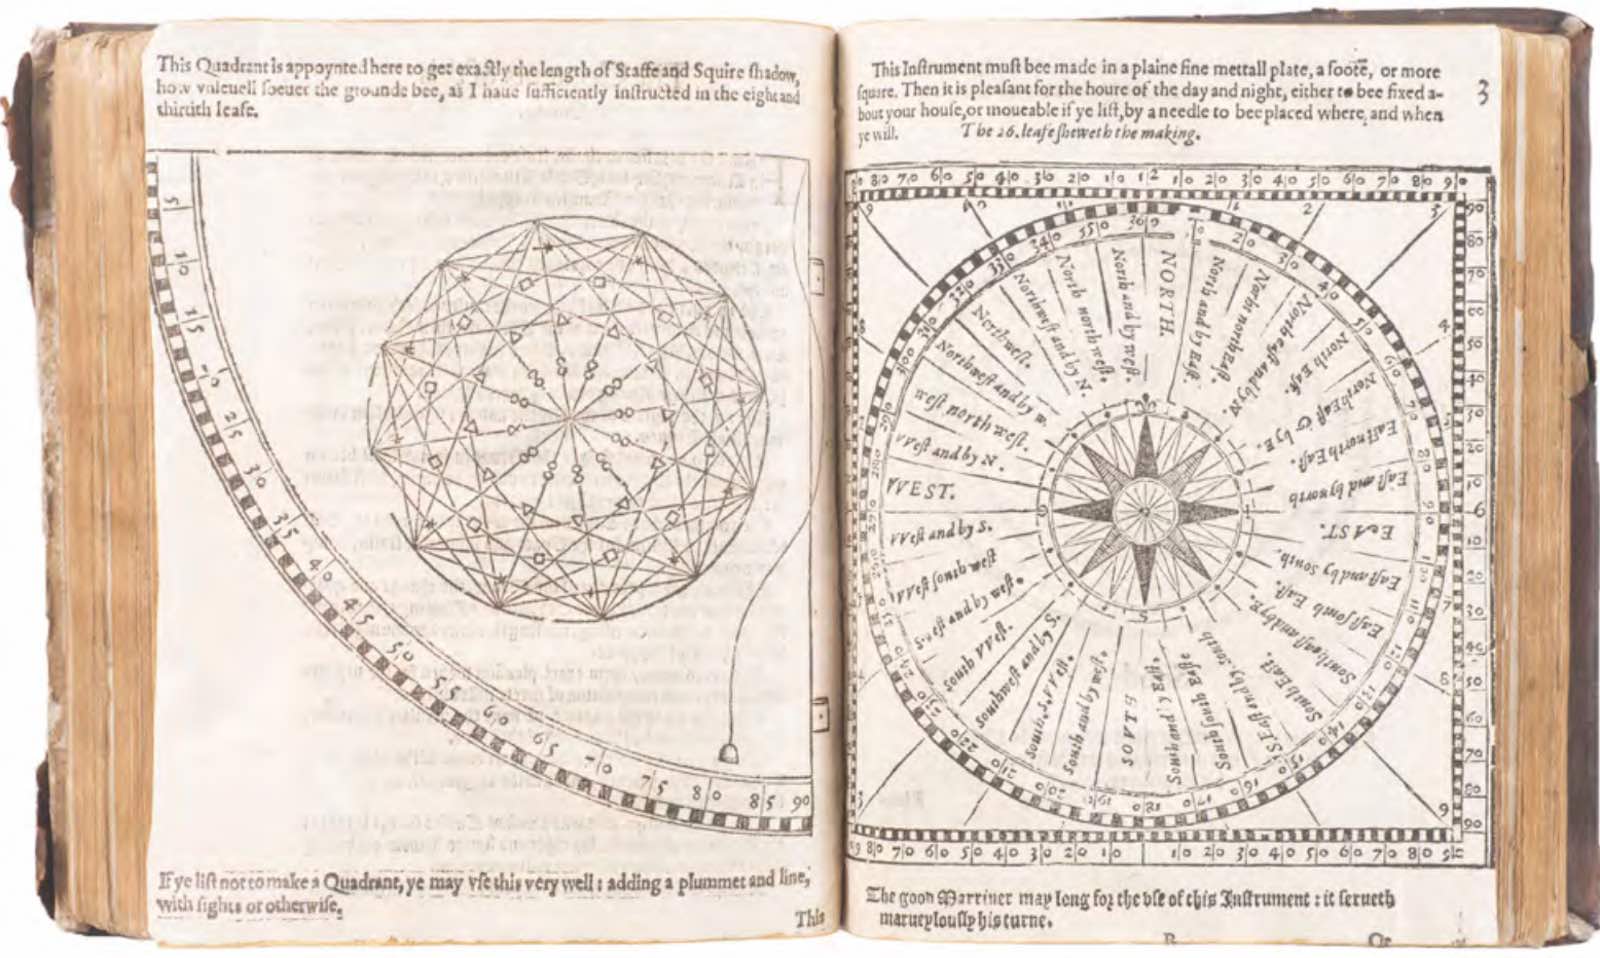 This Quadrant is appoynted here to get exactly the length of Staffe and Squire shadow,
how vnleuell soeuer the grounde bee, as I haue sufficiently instructed in the eight and
thirtith lease.
5
10
15
20
25
30
35
40
45
50
55
60
65
70
75
80
85
90
If ye list not to make a Quadrant, ye may vse this very well: adding a plummet and line,
with sights or otherwise.
This
This Instrument must bee made in a plaine fine mettall plate, a foote, or more
square. Then it is pleasant for the houre of the day and night, either to bee fixed a-
bout your house, or moueable if ye list, by a needle to bee placed where, and when
ye will. The 26. lease sheweth the making.
3
80 70 60 50 40 30 20 10 12 10 20 30 40 50 60 70 80 90
NORTH.
North and by East.
North north East.
North east and by N.
North East.
North East & by E.
East north East.
East and by north
EAST.
East and by South.
East south East.
South east and by E.
South East.
S. East and by South
South south East
South and by East
SOVTH
South and by west.
South. S. VVest.
Southwest and by S.
South VVest.
S. west and by west.
VVest south west
VVest and by S.
VVEST.
VVest and by N.
west north west.
Northwest and by w.
Northwest.
Northwest and by N.
North north west.
North and by west.
80 70 60 50 40 30 20 10 10 20 30 40 50 60 70 80
The good Marriner may long for the vse of this Instrument: it serueth
marueylously his turne.
B
Or